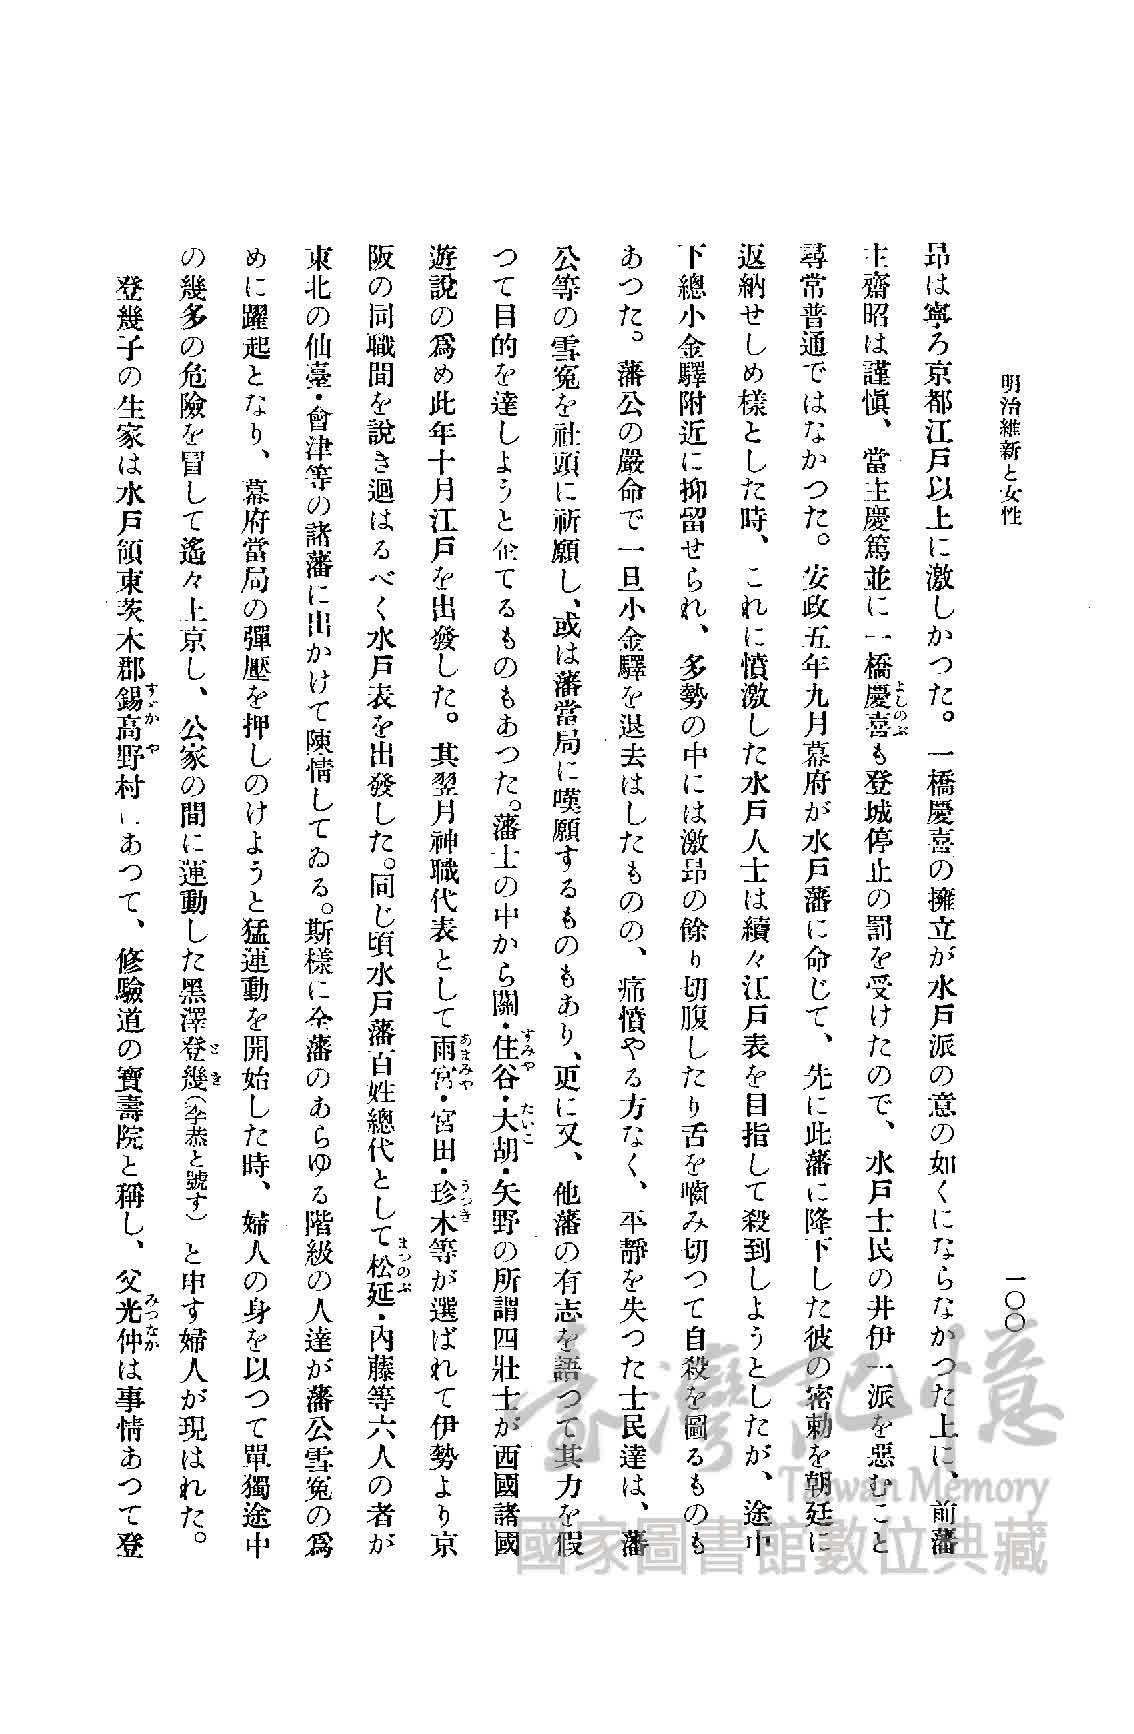 明治維新と女性
一〇〇
昂は寧ろ京都江戸以上に激しかつた。一橋慶喜の擁立が水戸派の意の如くにならなかつた上に、前藩
主齋昭は謹愼、當主慶篤並に一橋慶喜も登城停止の罰を受けたので、水戸士民の井伊一派を惡むこと
よしのぶ
尋常普通ではなかつた。安政五年九月幕府が水戸藩に命じて、先に此藩に降下した彼の密勅を朝廷に
返納せしめ樣とした時、これに憤激した水戸人士は續々江戸表を目指して殺到しようとしたが、途中
下總小金驛附近に抑留せられ、多勢の中には激昂の餘り切腹したり舌を嚙み切つて自殺を圖るものも
あつた。藩公の嚴命で一旦小金驛を退去はしたものの、痛憤やる方なく、平靜を失つた士民達は、藩
公等の雪寃を社頭に祈願し、或は藩當局に嘆願するものもあり、更に又、他藩の有志を語つて其力を假
つて目的を達しようと企てるものもあつた。藩士の中から關・住谷・大胡・矢野の所謂四壯士が西國諸國
すみや
たいこ
遊說の爲め此年十月江戸を出發した。其翌月神職代表として雨宮・宮田・珍木等が選ばれて伊勢より京
あまみや
うづき
阪の同職間を說き廻はるべく水戸表を出發した。同じ頃水戸藩百姓總代として松延・內藤等六人の者が
まつのぶ
東北の仙臺・會津等の諸藩に出かけて陳情してゐる。斯樣に全藩のあらゆる階級の人達が藩公雪寃の爲
めに躍起となり、幕府當局の彈壓を押しのけようと猛運動を開始した時、婦人の身を以つて單獨途中
の幾多の危險を冒して遙々上京し、公家の間に運動した黑澤登幾(李恭と號す)と申す婦人が現はれた。
とき
登幾子の生家は水戸領東茨木郡錫高野村にあつて、修驗道の寶壽院と稱し、父光仲は事情あつて登
すゞかや
みつなか
臺灣記憶
Taiwan Memory
國家圖書館數位典藏